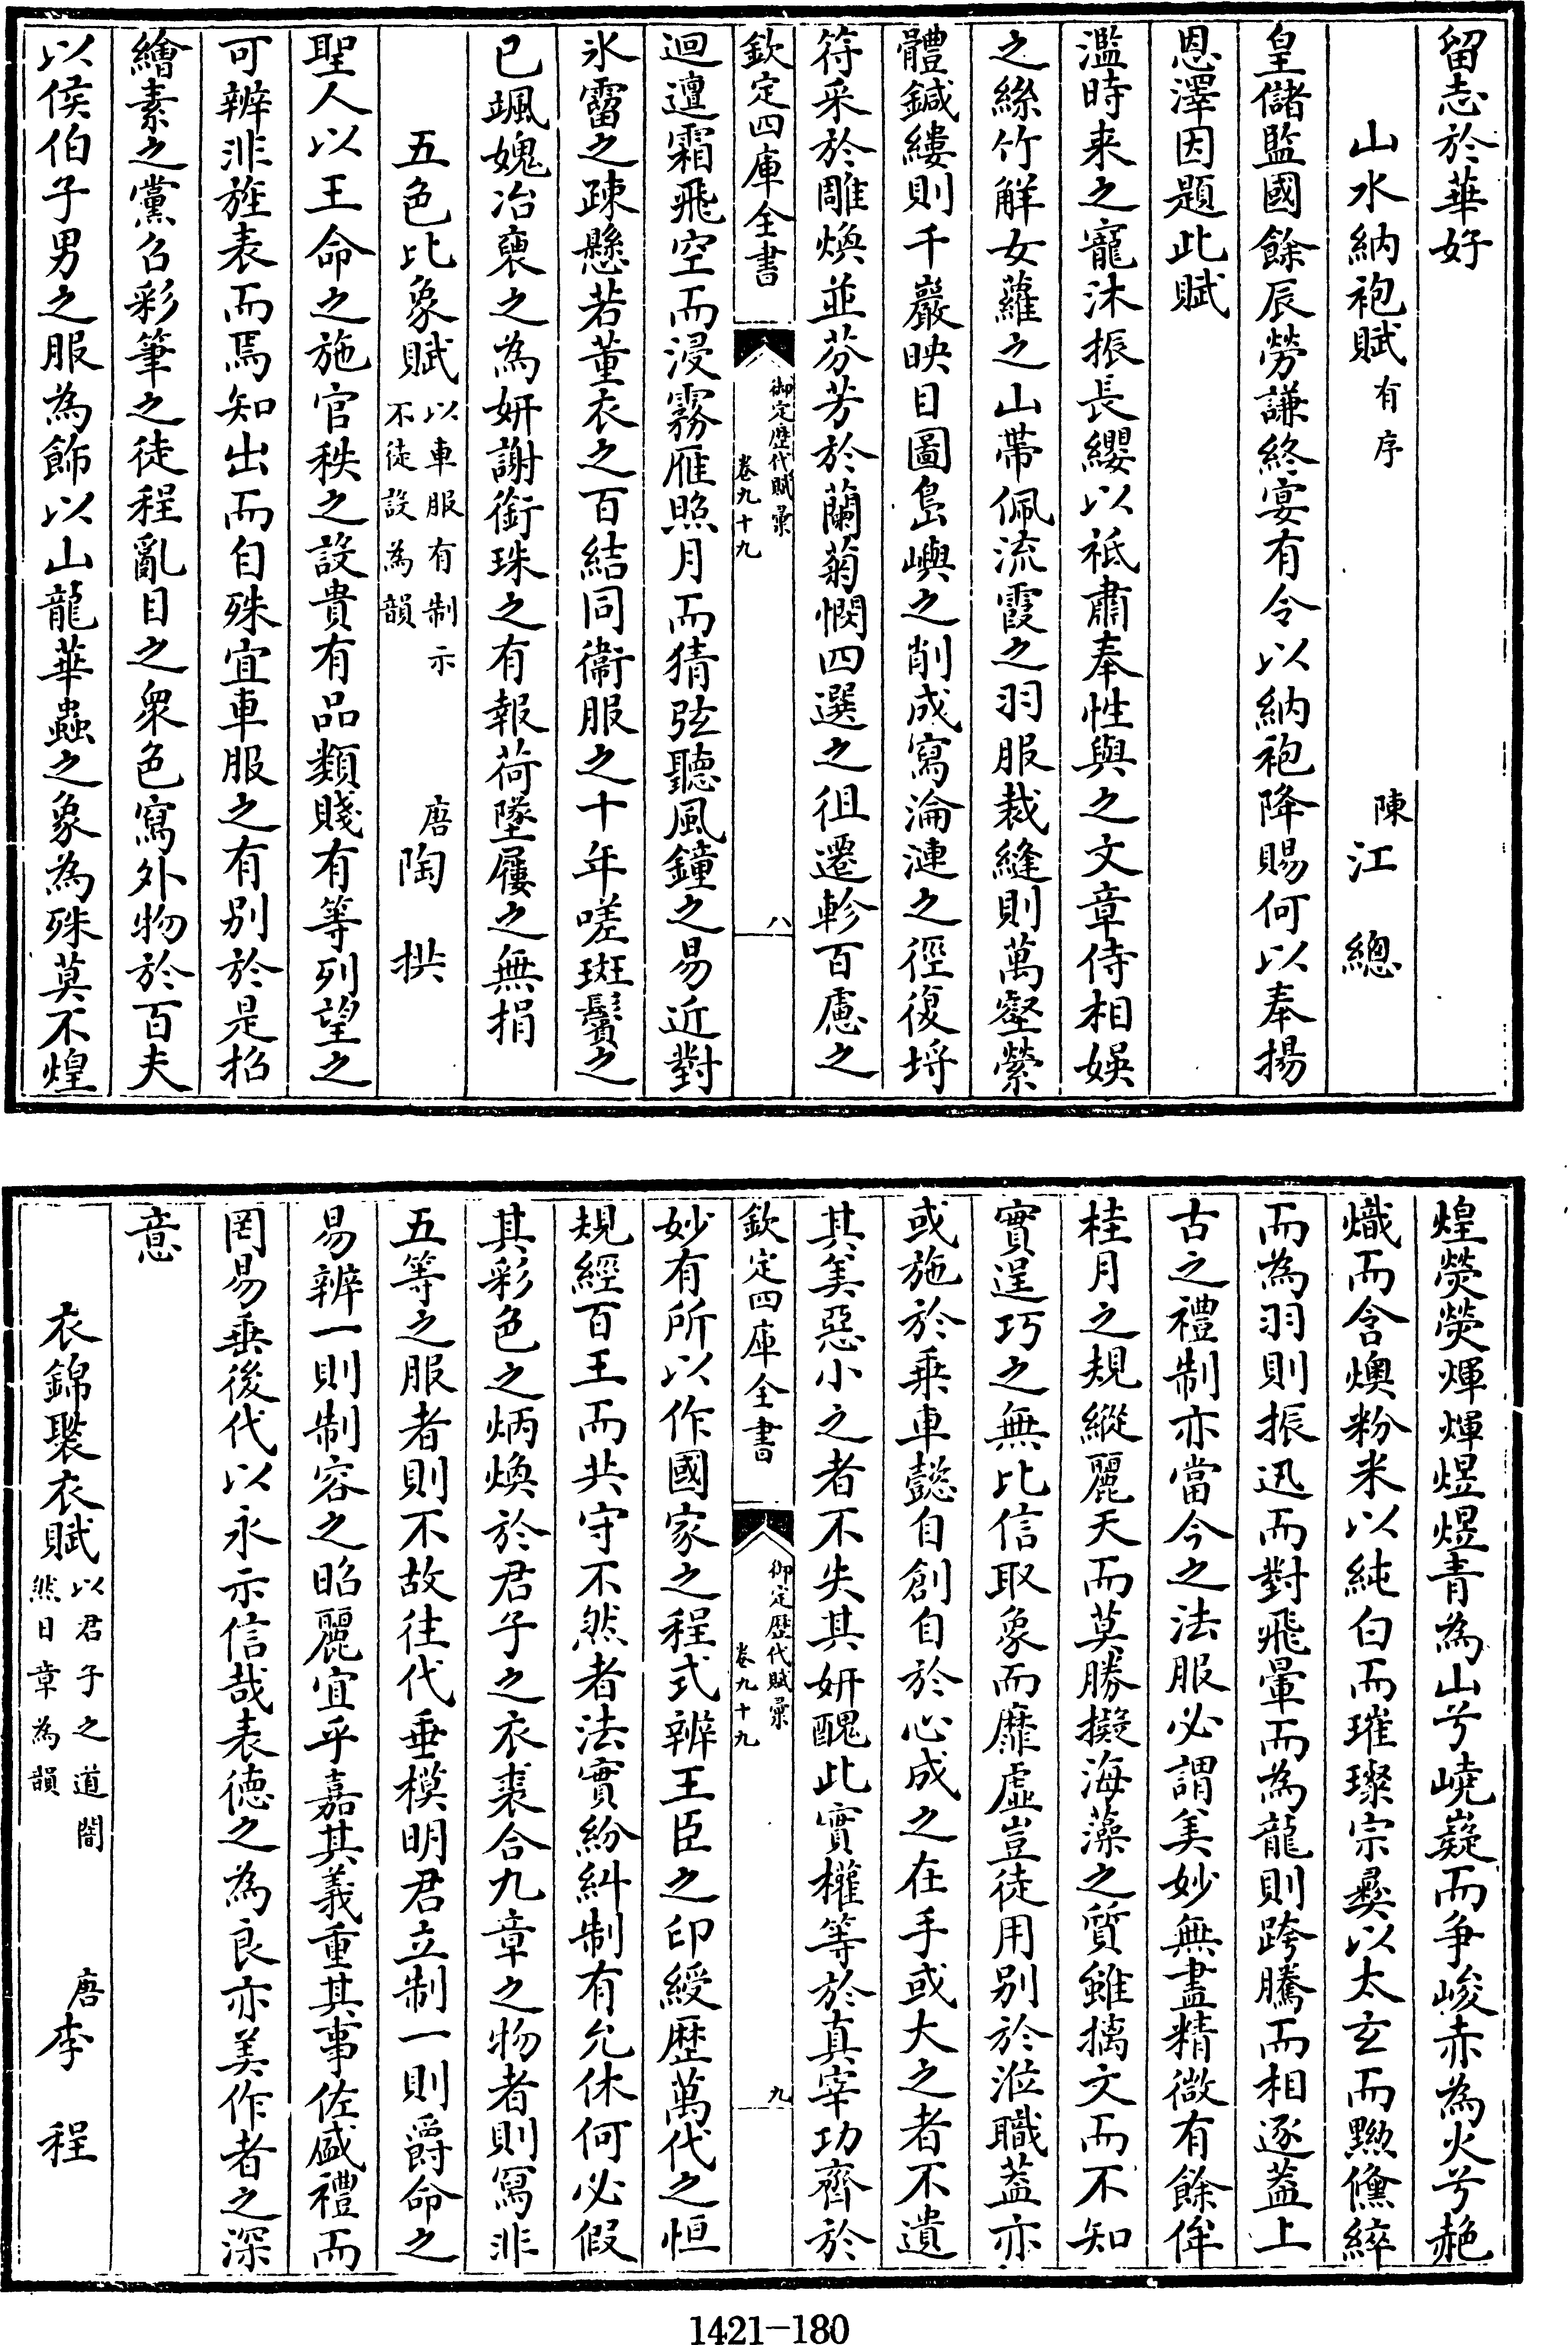 留志於華好
山水納袍賦有序 陳江總
皇儲監國餘辰勞謙終宴有令以納袍降賜何以奉揚
恩澤因題此賦
濫時来之寵沐振長纓以祗肅奉性與之文章侍相娱
之絲竹解女蘿之山帶佩流霞之羽服裁縫則萬壑縈
體鍼縷則千巖映目圖島嶼之削成寫淪漣之徑復埓
符采於雕煥並芬芳於蘭菊憫四選之徂遷軫百慮之
欽定四庫全書 御定歴代賦彙 卷九十九 八
迴邅霜飛空而浸霧雁照月而猜弦聽風鐘之易近對
氷霤之疎懸若董衣之百結同衞服之十年嗟斑鬢之
已颯媿冶襃之為妍謝銜珠之有報荷墜屨之無捐
五色比象賦以車服有制示不徒設為韻 唐陶拱
聖人以王命之施官秩之設貴有品類賤有等列望之
可辨非旌表而焉知出而自殊宜車服之有别於是招
繪素之黨召彩筆之徒程亂目之衆色寫外物於百夫
以侯伯子男之服為飾以山龍華蟲之象為殊莫不煌
煌熒熒煇煇煜煜青為山兮嶢嶷而争峻赤為火兮赩
熾而含燠粉米以純白而璀璨宗彝以太玄而黝儵綷
而為羽則振迅而對飛暈而為龍則跨騰而相逐葢上
古之禮制亦當今之法服必謂美妙無盡精微有餘侔
桂月之規縱麗天而莫勝擬海藻之質雖摛文而不知
實逞巧之無比信取象而靡虚豈徒用别於涖職葢亦
或施於乗車懿自創自於心成之在手或大之者不遺
其美惡小之者不失其妍醜此實權等於真宰功齊於
欽定四庫全書 御定歴代賦彙 卷九十九 九
妙有所以作國家之程式辨王臣之印綬歴萬代之恒
規經百王而共守不然者法實紛糾制有允休何必假
其彩色之炳煥於君子之衣裘合九章之物者則寫非
五等之服者則不故往代垂模明君立制一則爵命之
易辨一則制容之昭麗宜乎嘉其義重其事佐盛禮而
罔易垂後代以永示信哉表德之為良亦美作者之深
意
衣錦褧衣賦以君子之道闇然日章為韻 唐李程
1421-180